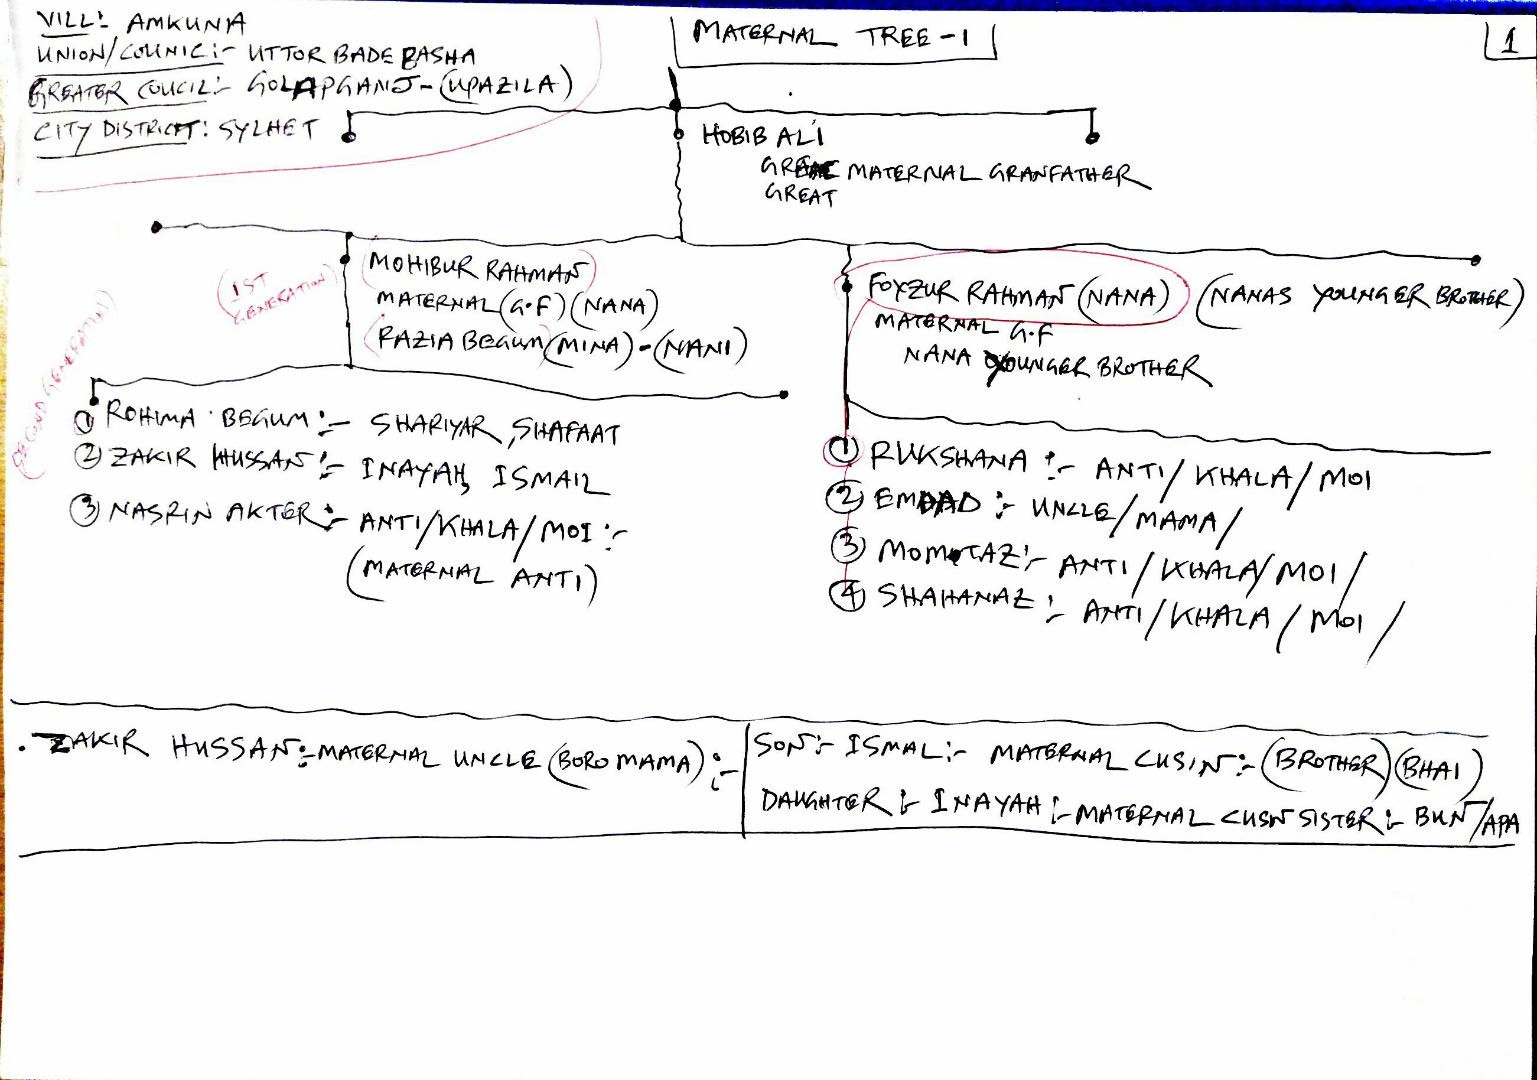 VILL: AMKUNA
UNION/COUNIC:- UTTOR BADE BASHA
GREATER COUCIL:- GOLAPGANJ-(UPAZILA)
CITY DISTRICT: SYLHET
MATERNAL TREE-1
1
HOBIB ALI
GREAE MATERNAL GRANFATHER
GREAT
1ST GENERATION
SECOND GENERATION
MOHIBUR RAHMAN
MATERNAL (G.F) (NANA)
RAZIA BEGUM (MINA)-(NANI)
FOYZUR RAHMAN (NANA) (NANAS YOUNGER BROTHER)
MATERNAL G.F
NANA YOUNGER BROTHER
① ROHIMA BEGUM:- SHARIYAR, SHAFAAT
② ZAKIR HUSSAN:- INAYAH, ISMAIL
③ NASRIN AKTER:- ANTI/KHALA/MOI:-
(MATERNAL ANTI)
① RUKSHANA:- ANTI/KHALA/MOI
② EMDAD:- UNCLE/MAMA/
③ MOMOTAZ:- ANTI/KHALA/MOI/
④ SHAHANAZ:- ANTI/KHALA/MOI/
. ZAKIR HUSSAN:- MATERNAL UNCLE (BORO MAMA):-
SON:- ISMAL:- MATERNAL CUSIN:- (BROTHER) (BHAI)
DAUGHTER:- INAYAH:- MATERNAL CUSN SISTER:- BUN/APA